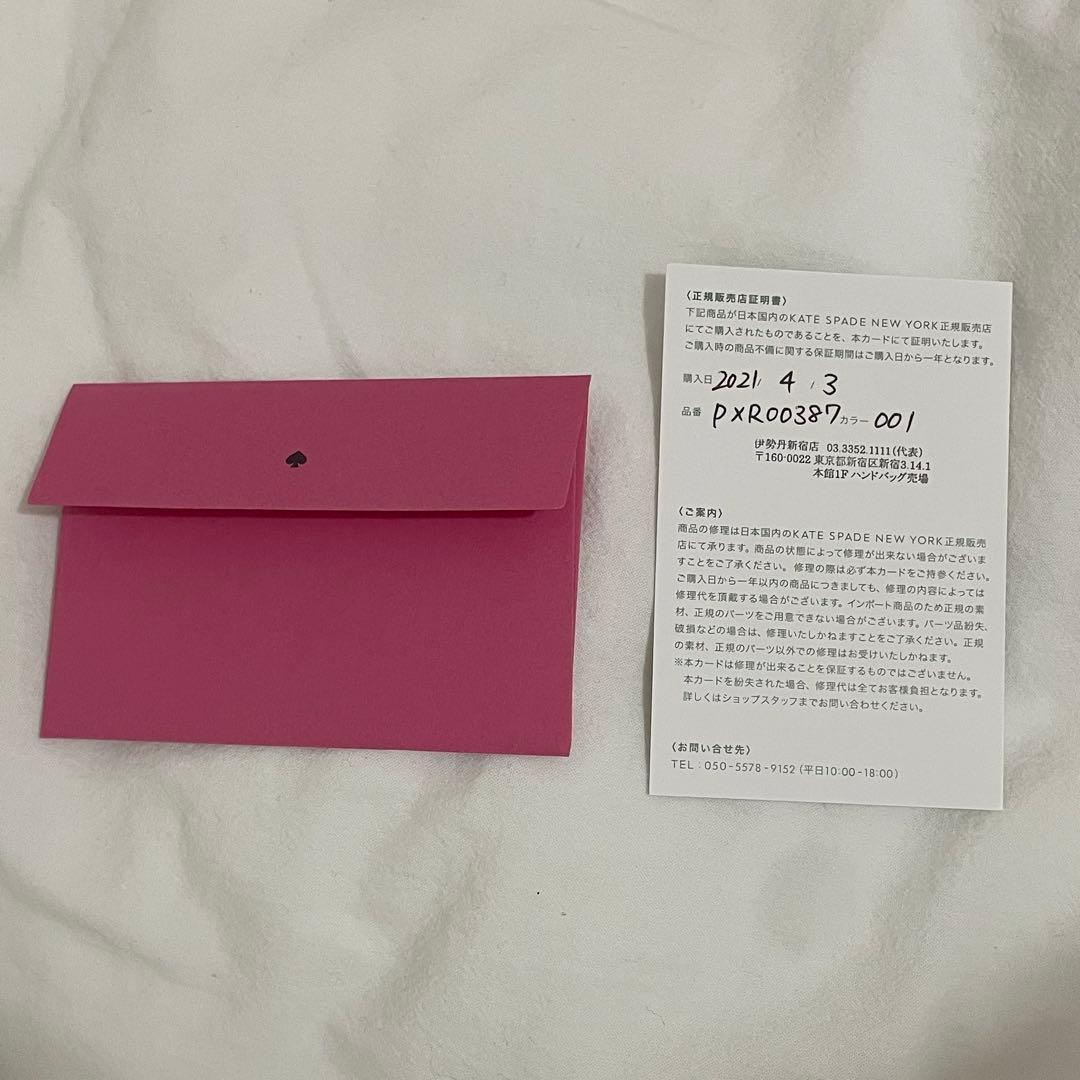 〈正規販売店証明書〉
下記商品が日本国内のKATE SPADE NEW YORK正規販売店
にてご購入されたものであることを、本カードにて証明いたします。
ご購入時の商品不備に関する保証期間はご購入日から一年となります。
購入日 2021/ 4 / 3
品番 PXR00387 カラー 001
伊勢丹新宿店 03.3352.1111(代表)
〒160-0022 東京都新宿区新宿3.14.1
本館1F ハンドバッグ売場
〈ご案内〉
商品の修理は日本国内のKATE SPADE NEW YORK正規販売
店にて承ります。商品の状態によって修理が出来ない場合がございま
すことをご了承ください。修理の際は必ず本カードをご持参ください。
ご購入日から一年以内の商品につきましても、修理の内容によっては
修理代を頂戴する場合がございます。インポート商品のため正規の素
材、正規のパーツをご用意できない場合がございます。パーツ品紛失、
破損などの場合は、修理いたしかねますことをご了承ください。正規
の素材、正規のパーツ以外での修理はお受けいたしかねます。
※本カードは修理が出来ることを保証するものではございません。
本カードを紛失された場合、修理代は全てお客様負担となります。
詳しくはショップスタッフまでお問い合わせください。
〈お問い合せ先〉
TEL：050-5578-9152 (平日10:00-18:00)